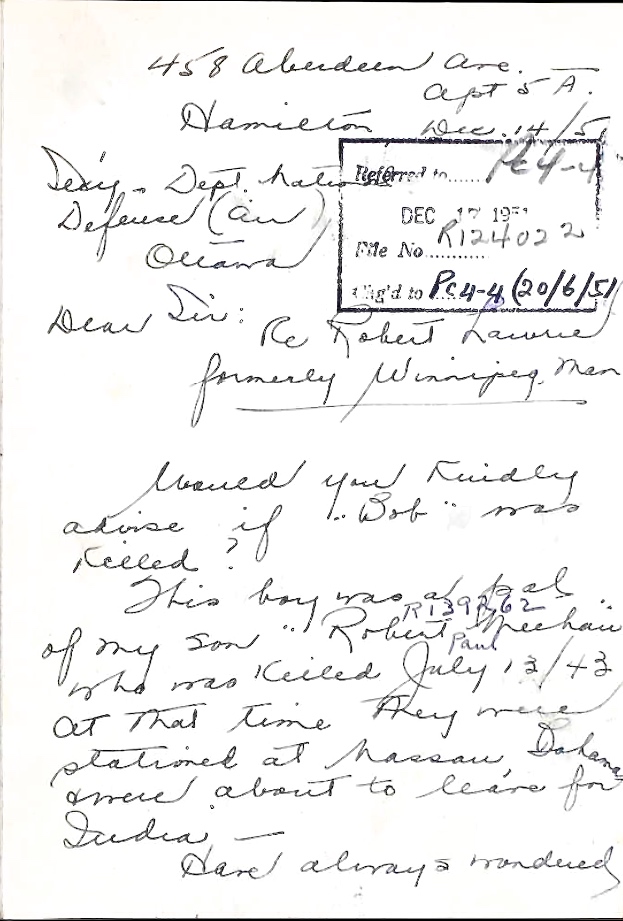 458 Aberdeen Ave.
Apt 5 A.
Hamilton Dec. 14/51
Sec'y - Dept. National
Defense (Air)
Ottawa
Referred to...... PC4-4
DEC 17 1951
File No R124022
Chg'd to PC4-4 (20/6/51)
Dear Sir:
Re Robert Lawrie
formerly Winnipeg, Man
Would you kindly
advise if "Bob" was
killed?
This boy was a pal
R139262
of my son "Robert
Paul
who was killed July 13/43
At that time they were
stationed at Nassau, Bahamas
& were about to leave for
India, —
Have always wondered